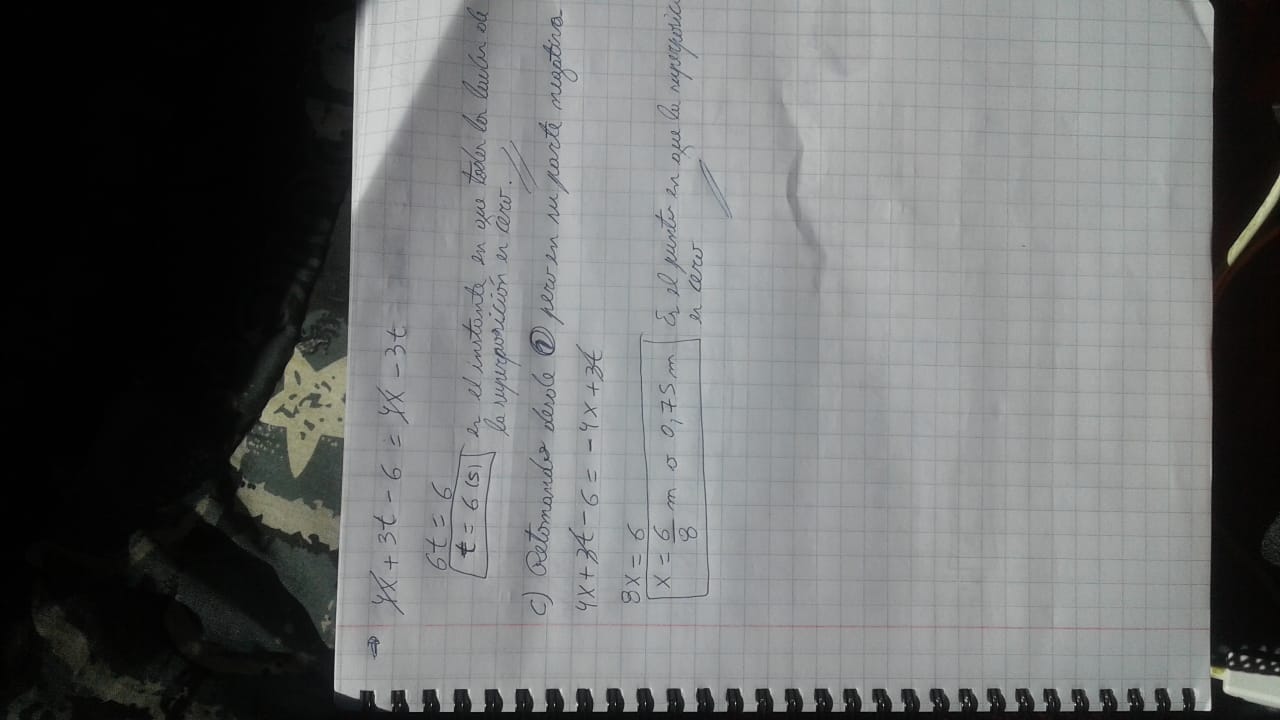 ⇒ 4x + 3t - 6 = 4x - 3t
6t = 6
t = 6 (s) es el instante en que todos los lados de
la superposición es cero.
c) Retomando desde ② pero en su parte negativa
4x + 3t - 6 = - 4x + 3t
8x = 6
x = 6/8 m o 0,75 m Es el punto en que la superposici
es cero